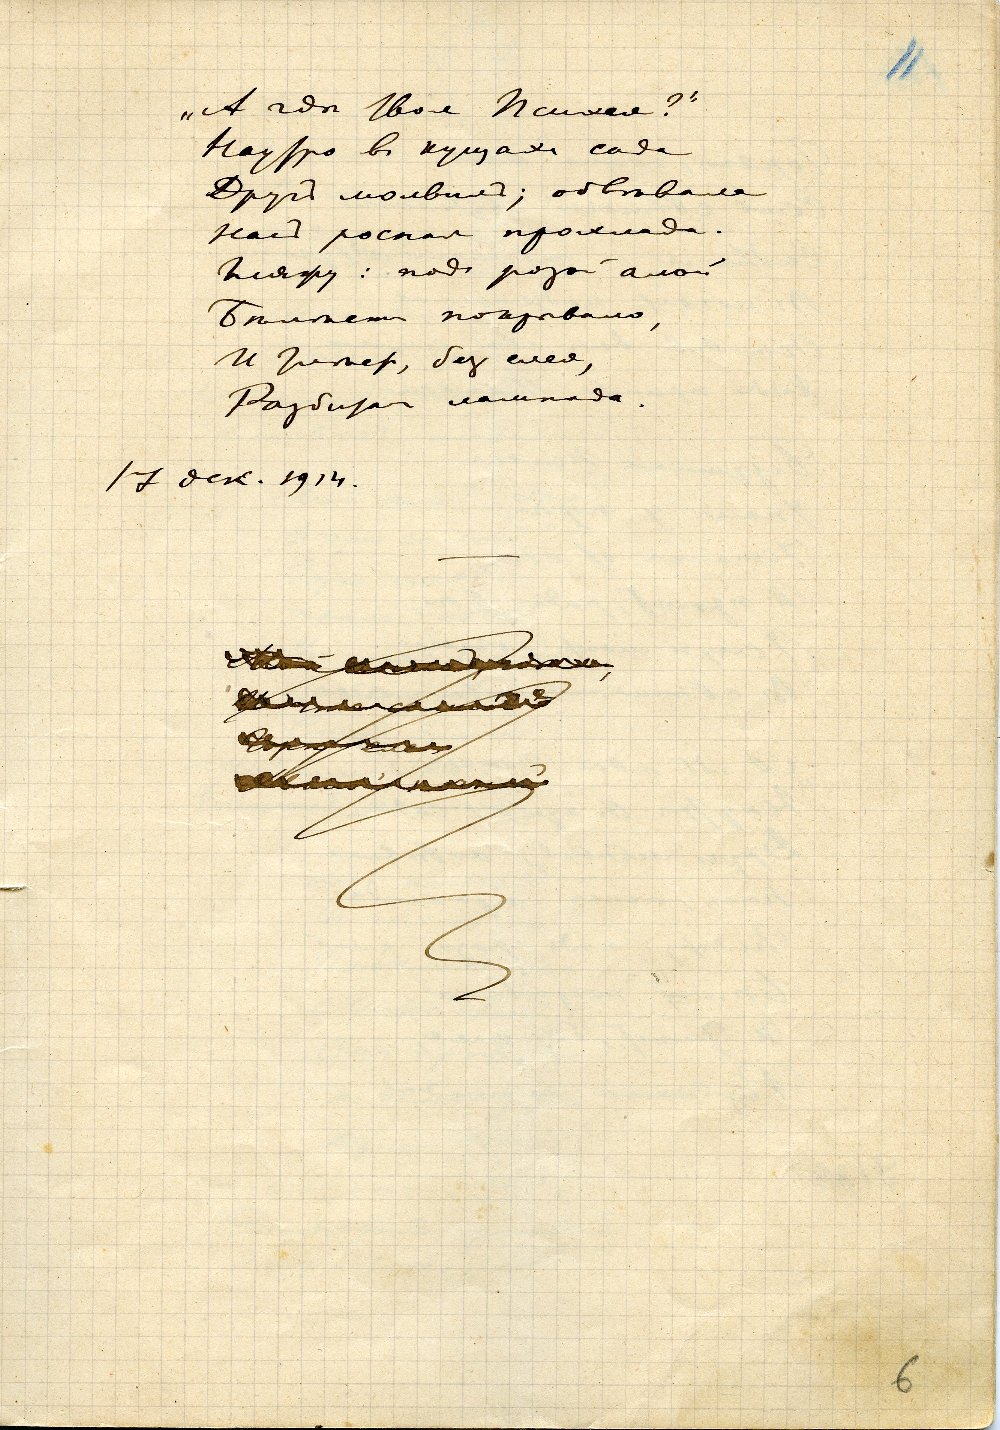 11
„А гдѣ твоя Психея?“
Наутро въ кущахъ сада
Другъ молвилъ; обвѣвала
Насъ росная прохлада.
Гляжу: подъ розой алой
Бѣлѣетъ покрывало,
И тлѣетъ, безъ елея,
Разбитая лампада.
17 дек. 1914.
6